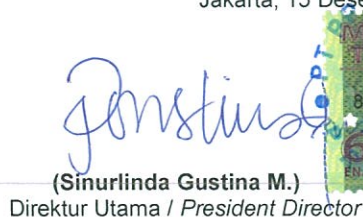 Jakarta, 15 Dese
(Sinurlinda Gustina M.)
Direktur Utama / President Director